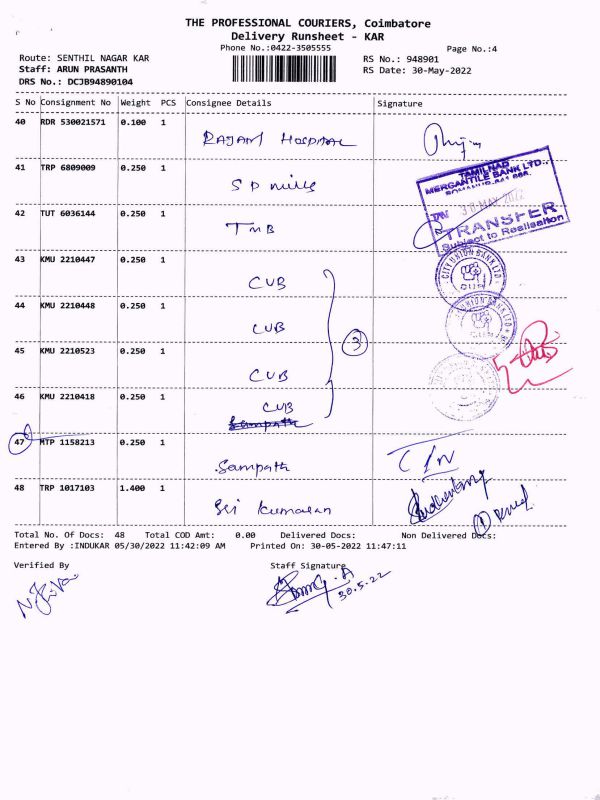 THE PROFESSIONAL COURIERS, Coimbatore
Delivery Runsheet - KAR
Phone No.:0422-3505555
Page No.:4
Route: SENTHIL NAGAR KAR
RS No.: 948901
Staff: ARUN PRASANTH
RS Date: 30-May-2022
DRS No.: DCJB94890104
S No Consignment No Weight PCS Consignee Details Signature
40 RDR 530021571 0.100 1
RAJAM HOSPITAL
41 TRP 6809009 0.250 1
S P mills
TAMILNAD
MERCANTILE BANK LTD.,
30 MAY 2022
TRANSFER
Subject to Realisation
42 TUT 6036144 0.250 1
TMB
43 KMU 2210447 0.250 1
CUB
CITY UNION BANK LTD
CUB
44 KMU 2210448 0.250 1
CUB
UNION BANK LTD
CUB
3
45 KMU 2210523 0.250 1
CUB
46 KMU 2210418 0.250 1
CUB
Sampath
47 MTP 1158213 0.250 1
Sampath
48 TRP 1017103 1.400 1
Sri Kumaran
1
Total No. Of Docs: 48 Total COD Amt: 0.00 Delivered Docs: Non Delivered Docs:
Entered By :INDUKAR 05/30/2022 11:42:09 AM Printed On: 30-05-2022 11:47:11
Verified By Staff Signature
30.5.22